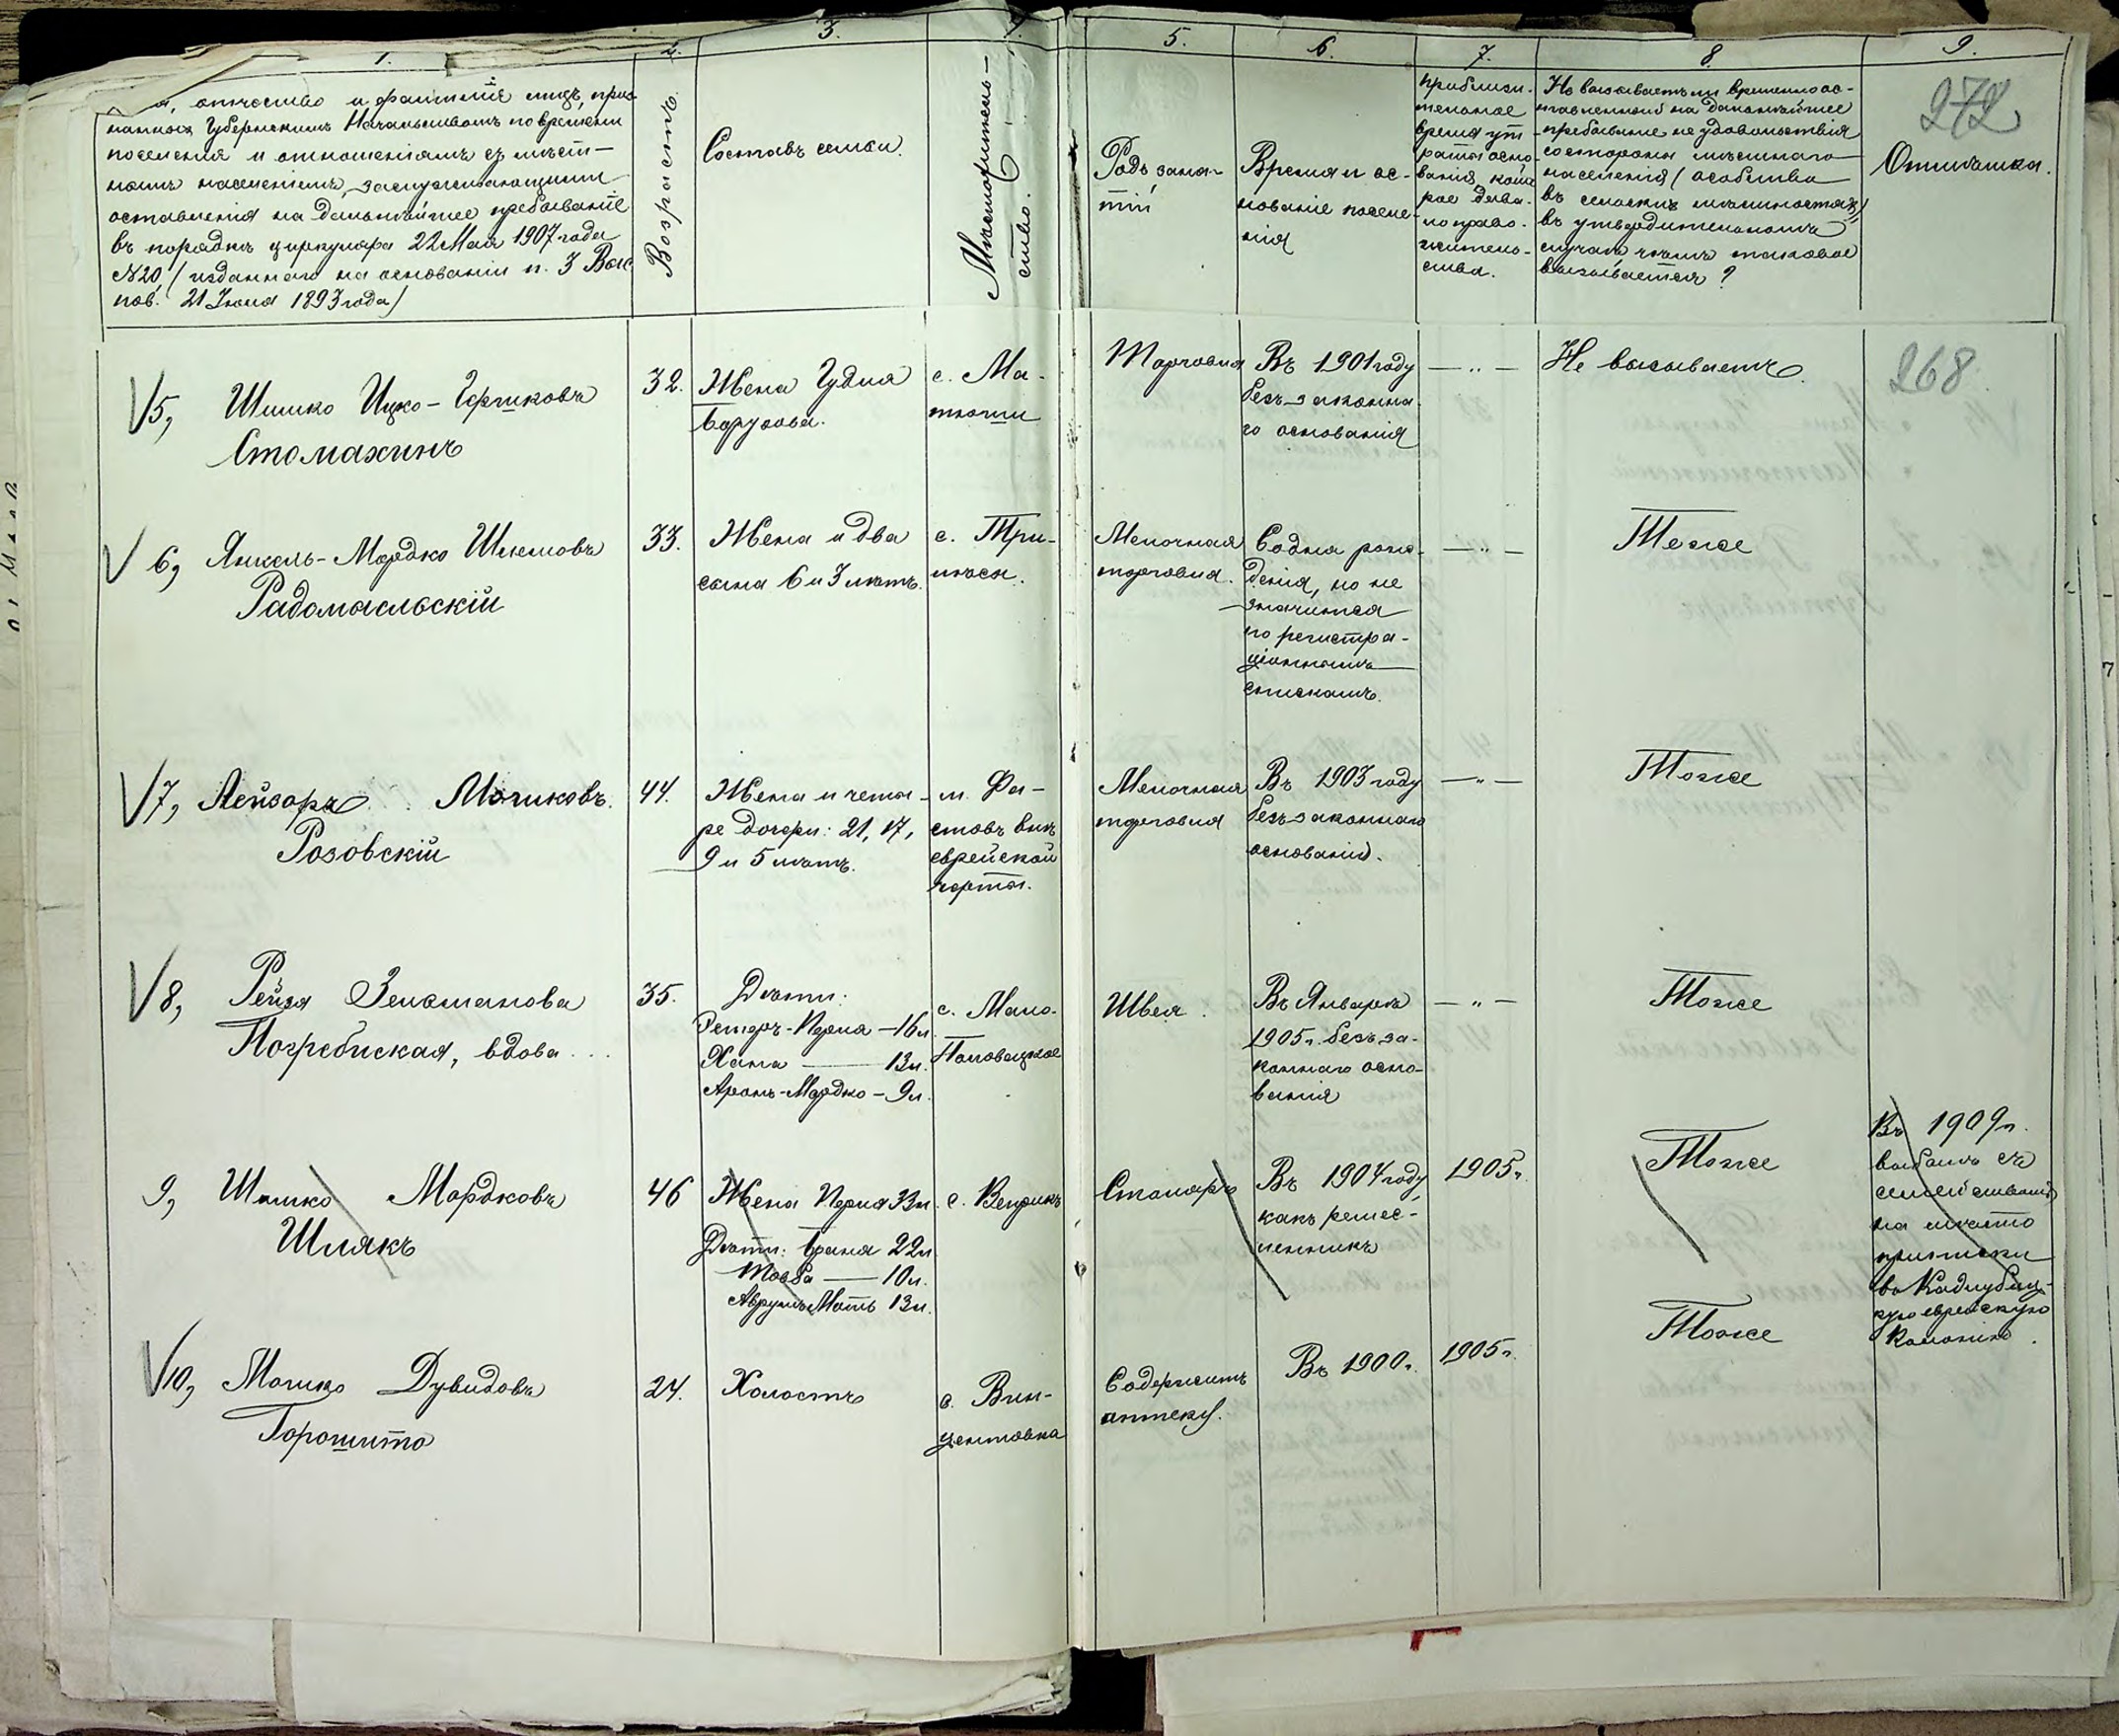 1.
, отчество и фамилія лицъ, приз-
нанныя Губернскимъ Начальствомъ по времени
поселенія и отношеніямъ къ мѣст-
ному населенію, заслуживающими
оставленія на дальнѣйшее пребываніе
въ порядкѣ циркуляра 22 Мая 1907 года
№20, (изданнаго на основаніи п. 3 Выс.
пов. 21 Іюня 1893 года)
2.
Возрастъ.
3.
Составъ семьи.
Мѣстожитель-
ство.
5.
Родъ заня-
тій
6.
Время и ос-
нованіе поселе-
нія
7.
Приблизи-
тельное
время ут-
раты осно-
ванія, кото
рое дава-
ло право-
житель-
ства.
8.
Не вызываетъ ли временно ос-
тавленной на дальнѣйшее
пребываніе неудовольствія
со стороны мѣстнаго
населенія (особливо
въ сельскихъ мѣстностяхъ)
въ утвердительномъ
случаѣ чѣмъ таковое
вызывается?
9.
272
Отмѣтка.
5, Шишко Ицко-Гершковъ
Стомахинъ
32.
Жена Гудля
Борухова.
с. Ма-
тюши
Торговля
Въ 1901 году
безъ законна
го основанія
— „ —
Не вызываетъ.
268
6, Янкель-Мордко Шлемовъ
Радомысльскій
33.
Жена и два
сына 6 и 3 лѣтъ.
с. Три-
лѣсы.
Мелочная
торговля.
Со дня рож-
денія, но не
значится
по регистра-
ціоннымъ
спискамъ.
— „ —
Тоже
7, Лейзоръ Мошковъ.
Розовскій
44.
Жена и четы-
ре дочери: 21, 17,
9 и 5 лѣтъ.
м. Фа-
стовъ внѣ
еврейской
черты.
Мелочная
торговля
Въ 1903 году
безъ законнаго
основанія.
— „ —
Тоже
8, Рейзя Зельмановa
Погребиская, вдова
35.
Дѣти:
Эстеръ-Перля — 16 л.
Хана — 13 л.
Аронъ-Мордко — 9 л.
с. Мало-
Половецкое
Швея.
Въ Январѣ
1905 г. безъ за-
коннаго осно-
ванія
— „ —
Тоже
9, Шишко Мордковъ
Шлякъ
46
Жена Перля 33 л.
Дѣти: Брана 22 л.
Товба — 10 л.
Аврумъ Моть 13 л.
с. Веприкъ
Столяръ
Въ 1904 году,
какъ ремес-
ленникъ
1905 г.
Тоже
Въ 1909 г.
выбылъ съ
семействомъ
на мѣсто
приписки
въ Кадлубиц-
кую еврейскую
колонію.
10, Мошко Дувидовъ
Горошито
24.
Холостъ
с. Вин-
центовка
Содержитъ
аптеку.
Въ 1900 г.
1905 г.
Тоже